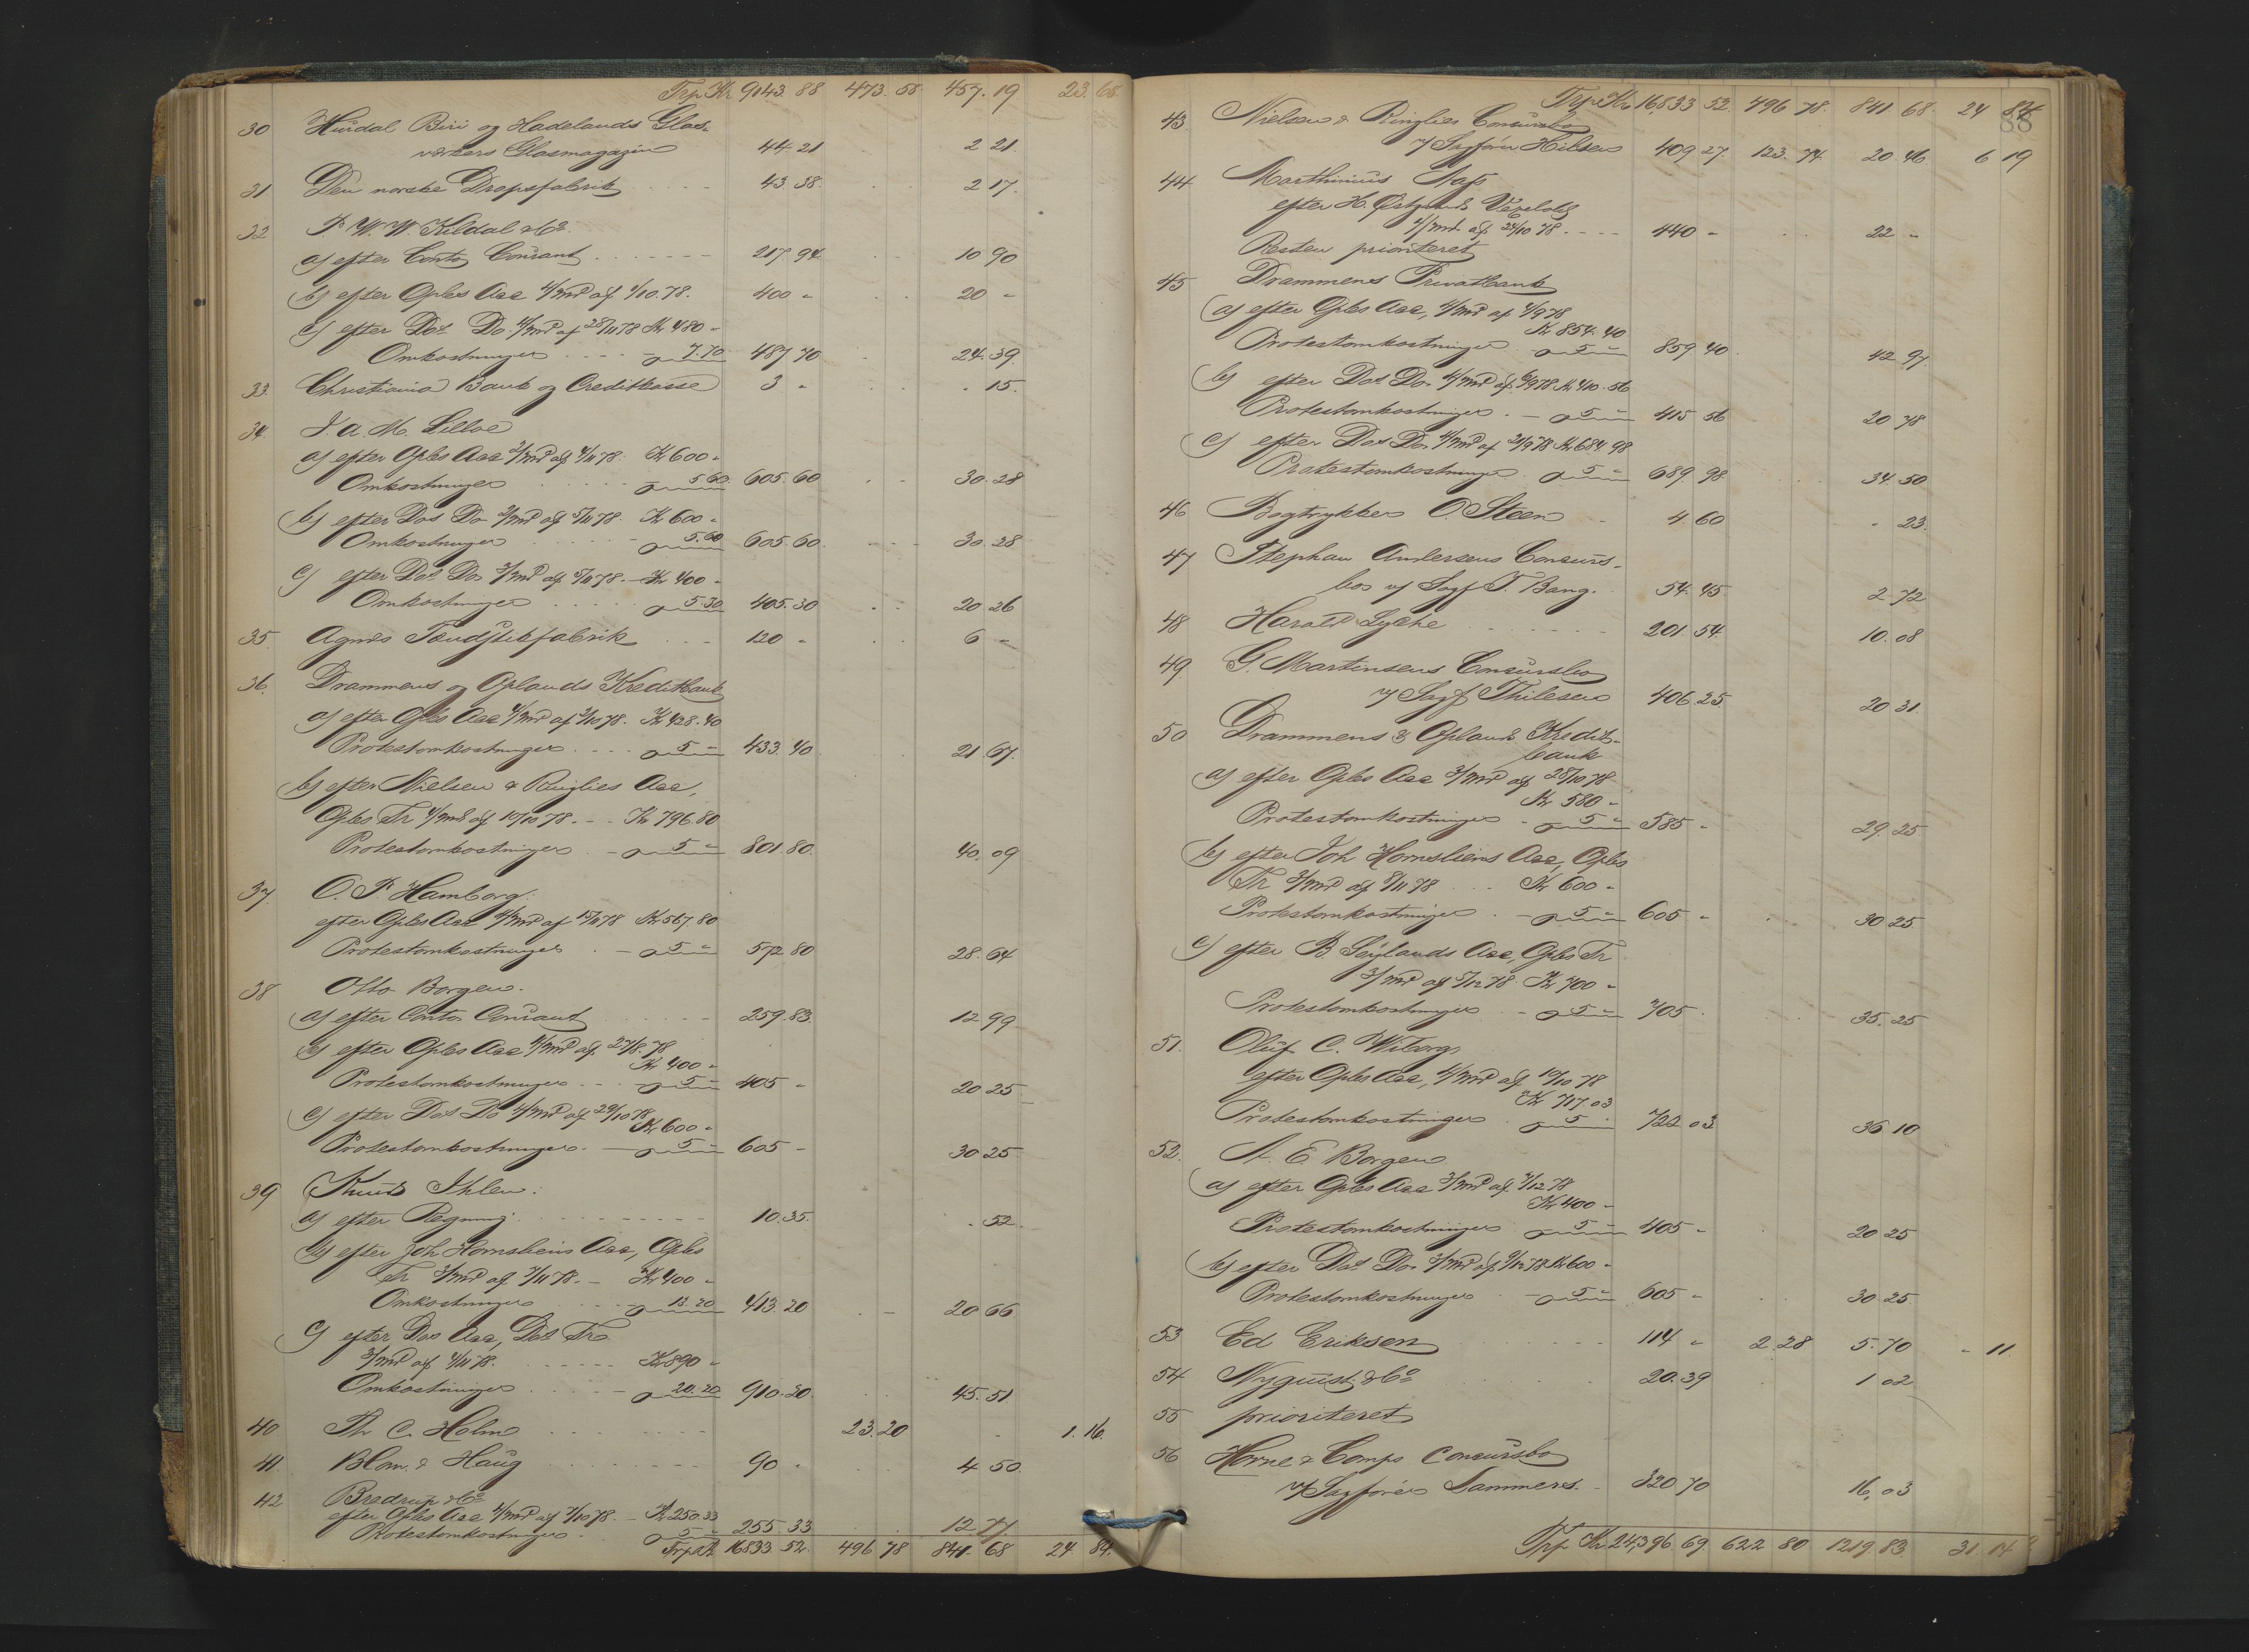 Trp Kr 9143.88 473.58 457.19 23.68
30 Hurdal Biri og Hadelands Glas-
værkers Glasmagazin 44 21 2 21
31 Den norske Dropsfabrik 43 38 2 17
32 P. W. W. Kildal & Co
a) efter Conto Courant 217.94 10 90
b) efter Opbs Acc 4/md af 1/10.78. 400 - 20 -
c) efter Dos Do. 4/md af 28/11 78 Kr 480 -
Omkostninger - 7.70 487 70 24.39
33. Christiania Bank og Creditkasse 3 - - 15.
34. J. A. M. Lilloe
a) efter Opbs Acc 3/md af 4/11 78. Kr 600 -
Omkostninger - 5.60 605.60 30.28
b) efter Dos Do 3/md af 5/11 78. Kr 600 -
Omkostninger - 5.60 605.60 30 28
c) efter Dos Do 3/md af 5/11 78. - Kr 400 -
Omkostninger 5.30 405.30 20 26
35. Agnes Tændstikfabrik 120 - 6 -
36. Drammens og Oplands Kreditbank
a) efter Opbs Acc 4/md af 3/10 78. Kr 428.40
Protestomkostninger 5 - 433.40 21.67.
b) efter Nielsen & Ringlies Acc,
Opbs Tr 4/md af 10/10 78. - - Kr 796.80
Protestomkostninger - 5 - 801 80. 40.09
37. O. P. Hamborg.
efter Opbs Acc 4/md af 15/11 78 Kr 567.80
Protestomkostninger - 5 - 572 80 28.64
38 Otto Borgen.
a) efter Conto Courant 259.83 12 99
b) efter Opbs Acc 4/md af. 27/8.78
Kr 400 -
Protestomkostninger - 5 - 405 - 20 25
c) efter Dos Do 4/md af 29/10 78
Kr 600 -
Protestomkostninger - 5 - 605 - 30 25
39 Knud Ihlen.
a) efter Regning 10.35. - 52
b) efter Joh Hornsliens Acc, Opbs
Tr 3/md af 7/11 78. - Kr 400 -
Omkostninger - 13.20 413.20 20 66
c) efter Dos Acc, Dos Tr
3/md af 4/11 78. Kr 890 -
Omkostninger - 20.20 910.20. 45.51
40 Th C. Holm 23.20 - 1.16.
41 Blom & Haug 90 - 4 50
42 Bredrup & Co
efter Opbs Acc 4/md af 7/10 78. - Kr 250.33
Protestomkostninger. 5 - 255 33 12 77
Trp Kr 16833 52. 496 78 841.68 24.84.
Trp Kr 16,833 52. 496 78. 841 68. 24 84
88
43. Nielsen & Ringlies Concursbo
v/ Sagfører Hilsen 409 27. 123.74. 20 46 6 19
44 Marthinius Aas
efter H. Østgaards Vexelobl
4/md. af 24/10 78. 440 - 22 -
Resten prioriteret
45 Drammens Privatbank
a) efter Opbs Acc, 4/md af 4/9 78
Kr 854.40
Protestomkostninger 5 - 859 40 42 97
b) efter Dos Do. 4/md af 6/9 78 Kr 410.56
Protestomkostninger. - 5 - 415 56 20 78
c) efter Dos Do. 4/md af 21/9 78 Kr 684.98
Protestomkostninger 5 - 689 98 34.50
46 Bogtrykker O. Steen - 4.60 - 23
47 Stephan Andersens Concurs-
bo v/ Sagf T. Bang. 54.45 2 72
48 Harald Lyche 201.54 10.08
49. G. Martinsens Concursbo
v/ Sagf Thilesen 406.25 20 31
50 Drammens & Oplands Kredit-
bank
a) efter Opbs Acc 3/md af 28/10 78
Kr 580 -
Protestomkostninger - 5 - 585 - 29.25
b) efter Joh Hornsliens Acc, Opbs
Tr 3/md af 8/11 78 Kr 600 -
Protestomkostninger. - 5 - 605 - 30 25
c) efter B Løylands Acc, Opbs Tr
3/md af 5/12 78. Kr 700 -
Protestomkostninger - 5 - 705 - 35.25
51. Oluf C. Wiborg
efter Opbs Acc, 4/md af 10/10 78
Kr 717 03
Protestomkostninger. 5 - 722 03 36 10
52. A. E Borgen
a) efter Opbs Acc 3/md af 7/12 78
Kr 400 -
Protestomkostninger 5 - 405 - 20 25
b) efter Dos Do. 3/md af 9/12 78 Kr 600 -
Protestomkostninger. - 5 - 605 - 30 25
53 Ed Eriksen 114 - 2.28 5.70 - 11.
54 Nyquist & Co 20.39 1 02
55 prioriteret
56 Horne & Comps Concursbo
v/ Sagfører Lammers. - 320 70 16,03
Trp Kr 24,396.69 622 80 1219.83. 31.14